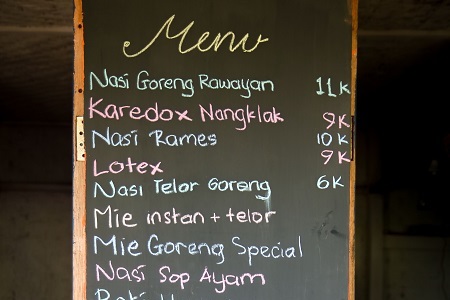 Menu
Nasi Goreng Rawayan 11K
Karedox Nangklak 9K
Nasi Rames 10K
Lotex 9K
Nasi Telor Goreng 6K
Mie instan + telor
Mie Goreng Special
Nasi Sop Ayam